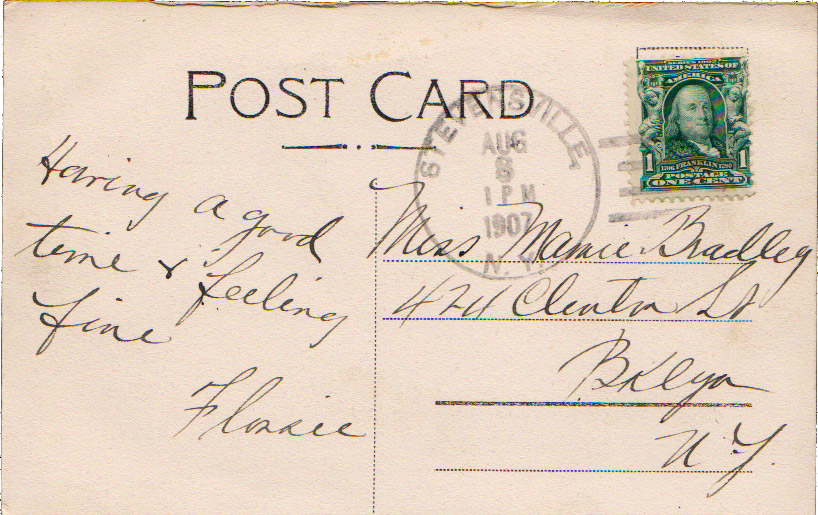 POST CARD
STEVENSVILLE,
AUG
8
1 PM
1907
N. Y.
SERIES 1902
UNITED STATES OF
AMERICA
1706 FRANKLIN 1790
1 POSTAGE 1
ONE CENT
Having a good
time & feeling
fine
Flossie
Miss. Mamie Bradley
424 Clinton St
Bklyn
N. Y.